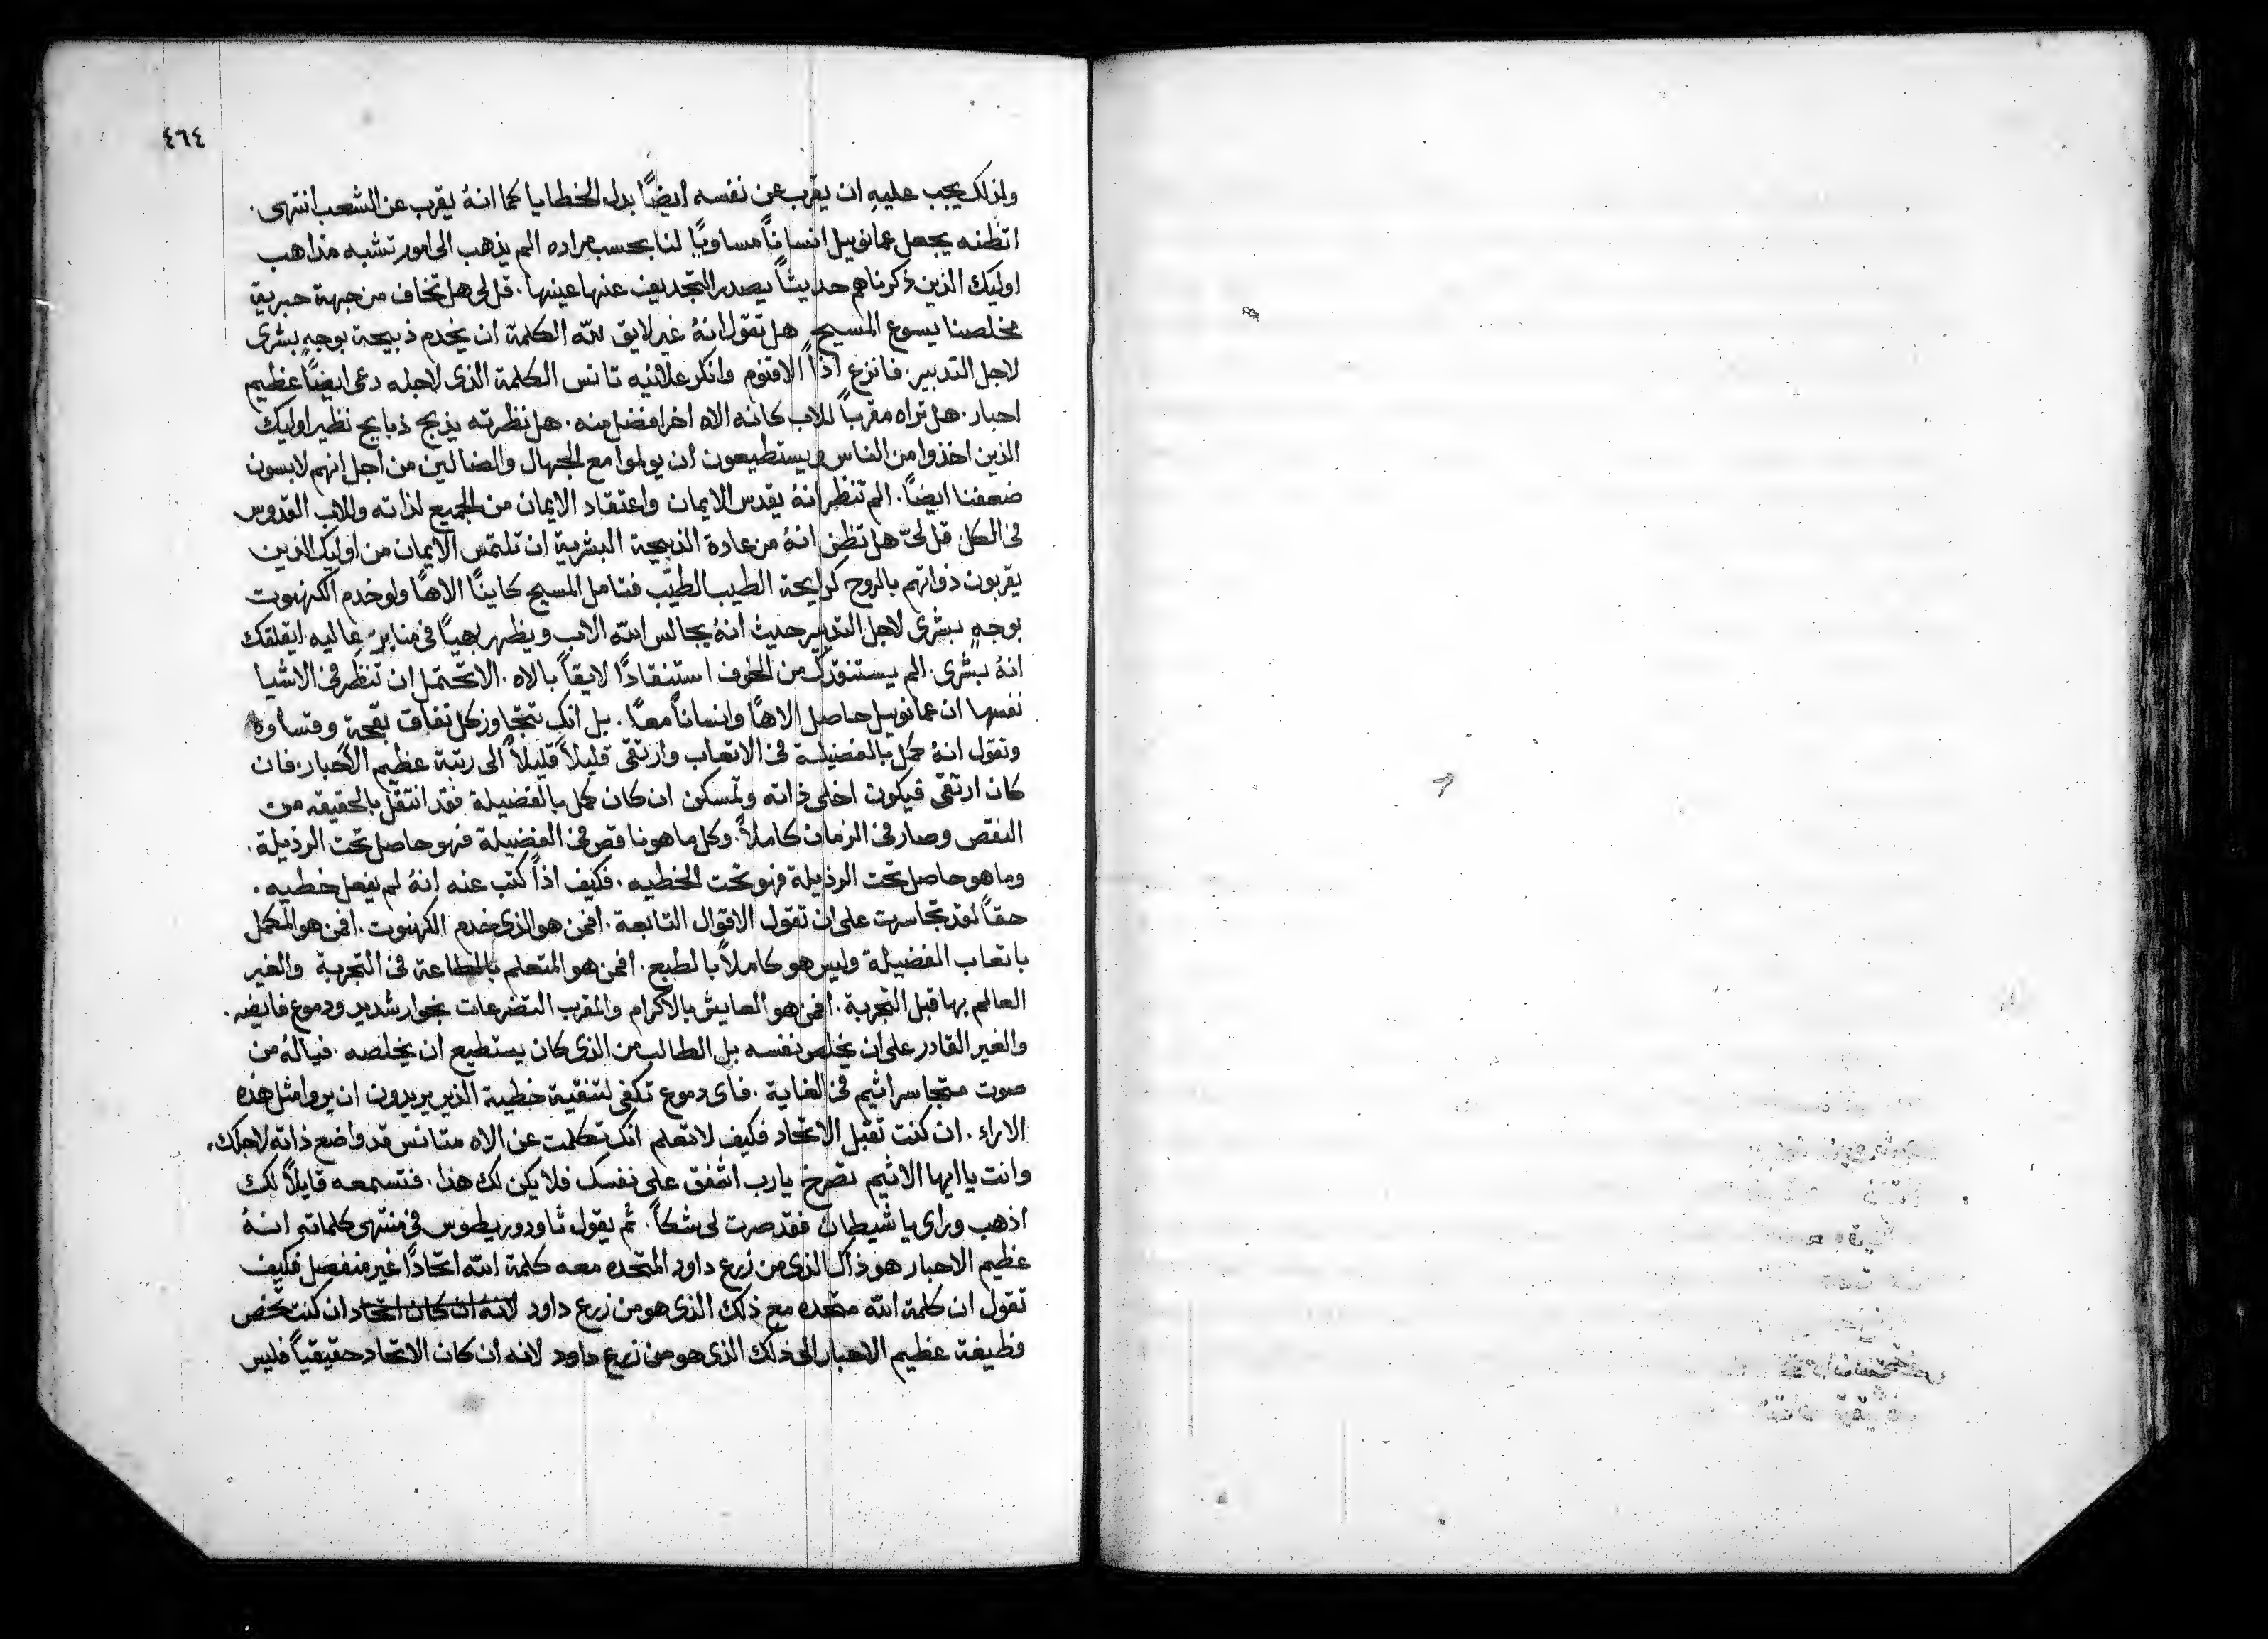 ٤٦٤
ولذلك يجب عليهِ ان يقرب عن نفسه ايضًا بدل الخطايا كما انهُ يقرب عن الشعب انتهى.
اتظنه يجعل عمانوييل انسانًا مساويًا لنا بحسب مراده الم يذهب الى امور تشبه مذاهب
اوليك الذين ذكرناهم حديثًا يصدر التجديف عنها عينها. قل لى هل تخاف من جهة حبرية
مخلصنا يسوع المسيح هل تقول انهُ غير لايق لله الكلمة ان يخدم ذبيحة بوجهٍ بشرى
لاجل التدبير. فانزع اذًا الاقنوم وانكر علانيه تانس الكلمة الذى لاجله دعى ايضًا عظيم
احبار. هل تراه مقربًا للاب كانه الاه اخر افضل منه. هل نظرته يذبح ذبايح نظير اوليك
الذين اخذوا من الناس ويستطيعون ان يولموا مع الجهال والضالين من اجل انهم لابسون
ضعفنا ايضًا. الم تنظر انهُ يقدس الايمان واعتقاد الايمان من الجميع لذاته وللاب القدوس
فى الكل قل لىّ هل تظن انهُ من عادة الذبيحة البشرية ان تلتمس الايمان من اوليك الذين
يقربون ذواتهم بالروح كرايحة الطيب الطيّب فتامل المسيح كاينًا الاهًا ولو خدم الكهنوت
بوجهٍ بشرى لاجل التدبير حيث انهُ يجالس الله الاب ويظهر بهيًا فى منابر عاليه ايقلقك
انهُ بشرى. الم يستنقذك من الخوف استنقاذًا لايقًا بالاه. الا تحتمل ان تنظر فى الاشيا
نفسها ان عمانوييل حاصل الاهًا وانسانًا معًا. بل انك تتجاوز كل نفاق بقحة وقساوه
وتقول انهُ كمل بالفضيلة فى الاتعاب وارتقى قليلاً قليلاً الى رتبة عظيم الاحبار. فان
كان ارتقى فيكون اخلى ذاته وتمسكن ان كان كمل بالفضيلة فقد انتقل بالحقيقه من
النقص وصار فى الزمان كاملاً. وكل ما هو ناقص فى الفضيلة فهو حاصل تحت الرذيلة.
وما هو حاصل تحت الرذيلة فهو تحت الخطيه. فكيف اذًا كتب عنه انهُ لم يفعل خطيه.
حقًا لقد تجاسرت على ان تقول الاقوال التابعة. افمن هو الذى خدم الكهنوت. افمن هو المكمل
باتعاب الفضيلة وليس هو كاملاً بالطبع. افمن هو المتعلم بالطاعة فى التجربة والغير
العالم بها قبل التجربة. افمن هو العايش بالاكرام والمقرب التضرعات بخوار شديد ودموع فايضه.
والغير القادر على ان يخلص نفسه بل الطالب من الذى كان يستطيع ان يخلصه. فيالهُ من
صوت متجاسر اثيم فى الغاية. فاى دموع تكفى لتنقية خطية الذين يريدون ان يروا مثل هذه
الاراء. ان كنت تقبل الاتحاد فكيف لا تعلم انك تكلمت عن الاه متانس قد واضع ذاته لاجلك.
وانت يا ايها الاثيم تصرخ يا رب اشفق على نفسك فلا يكن لك هذا. فتسمعه قايلاً لك
اذهب وراى يا شيطان فقد صرت لى شكًا. ثم يقول ثاودوريطوس فى منتهى كلماته انهُ
عظيم الاحبار هو ذاك الذى من زرع داود المتحده معه كلمة الله اتحادًا غير منفصل فكيف
تقول ان كلمة الله متحده مع ذلك الذى هو من زرع داود لانه ان كان اتحاد ان كنت تخص
فطيفة عظيم الاحبار الى ذلك الذى هو من زرع داود لانه ان كان الاتحاد حقيقيًا فليس